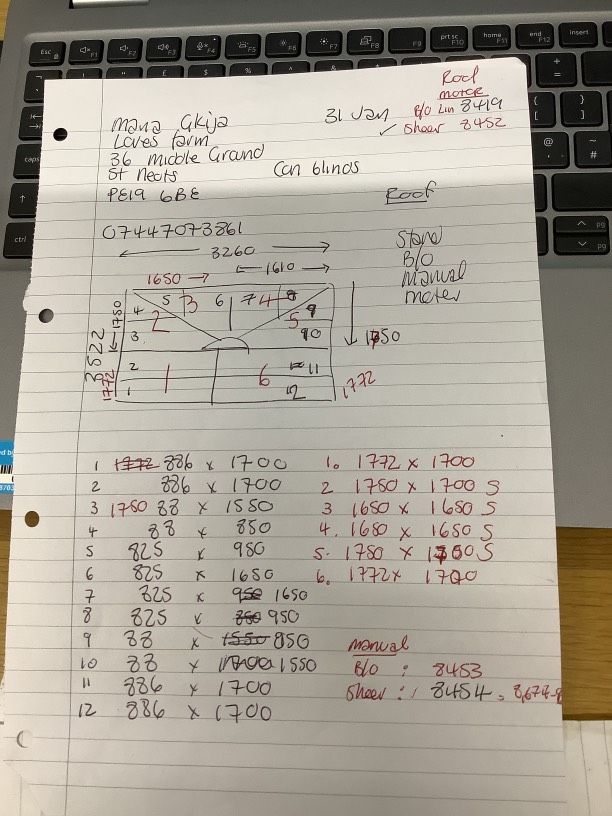 Roof
motor
31 Jan B/O Lin 8419
✓ Sheer 8452
Maria Gkija
Loves farm
36 Middle Ground
St Neots
Con blinds
PE19 6BE
Roof
07447073861
3260
1650 1610
Stand
B/O
Manual
moter
3522
1750
1772
4 5 3 6 7 4 8 9
2 5
3 10
1750
2 11
1 6
1 12
1772
1 1772 886 x 1700
2 886 x 1700
3 1750 88 x 1550
4 88 x 850
5 825 x 950
6 825 x 1650
7 825 x 950 1650
8 825 x 850 950
9 88 x 1550 850
10 88 x 1700 1550
11 886 x 1700
12 886 x 1700
1. 1772 x 1700
2 1750 x 1700 S
3 1650 x 1650 S
4. 1650 x 1650 S
5. 1750 x 1700 S
6. 1772 x 1700
manual
B/O : 8453
Sheer : 8454
Esc F1 F2 F3 F4 F5 F6 F7 F8 F9 prt sc F10 home F11 end F12 insert
caps
ctrl
pg
pg